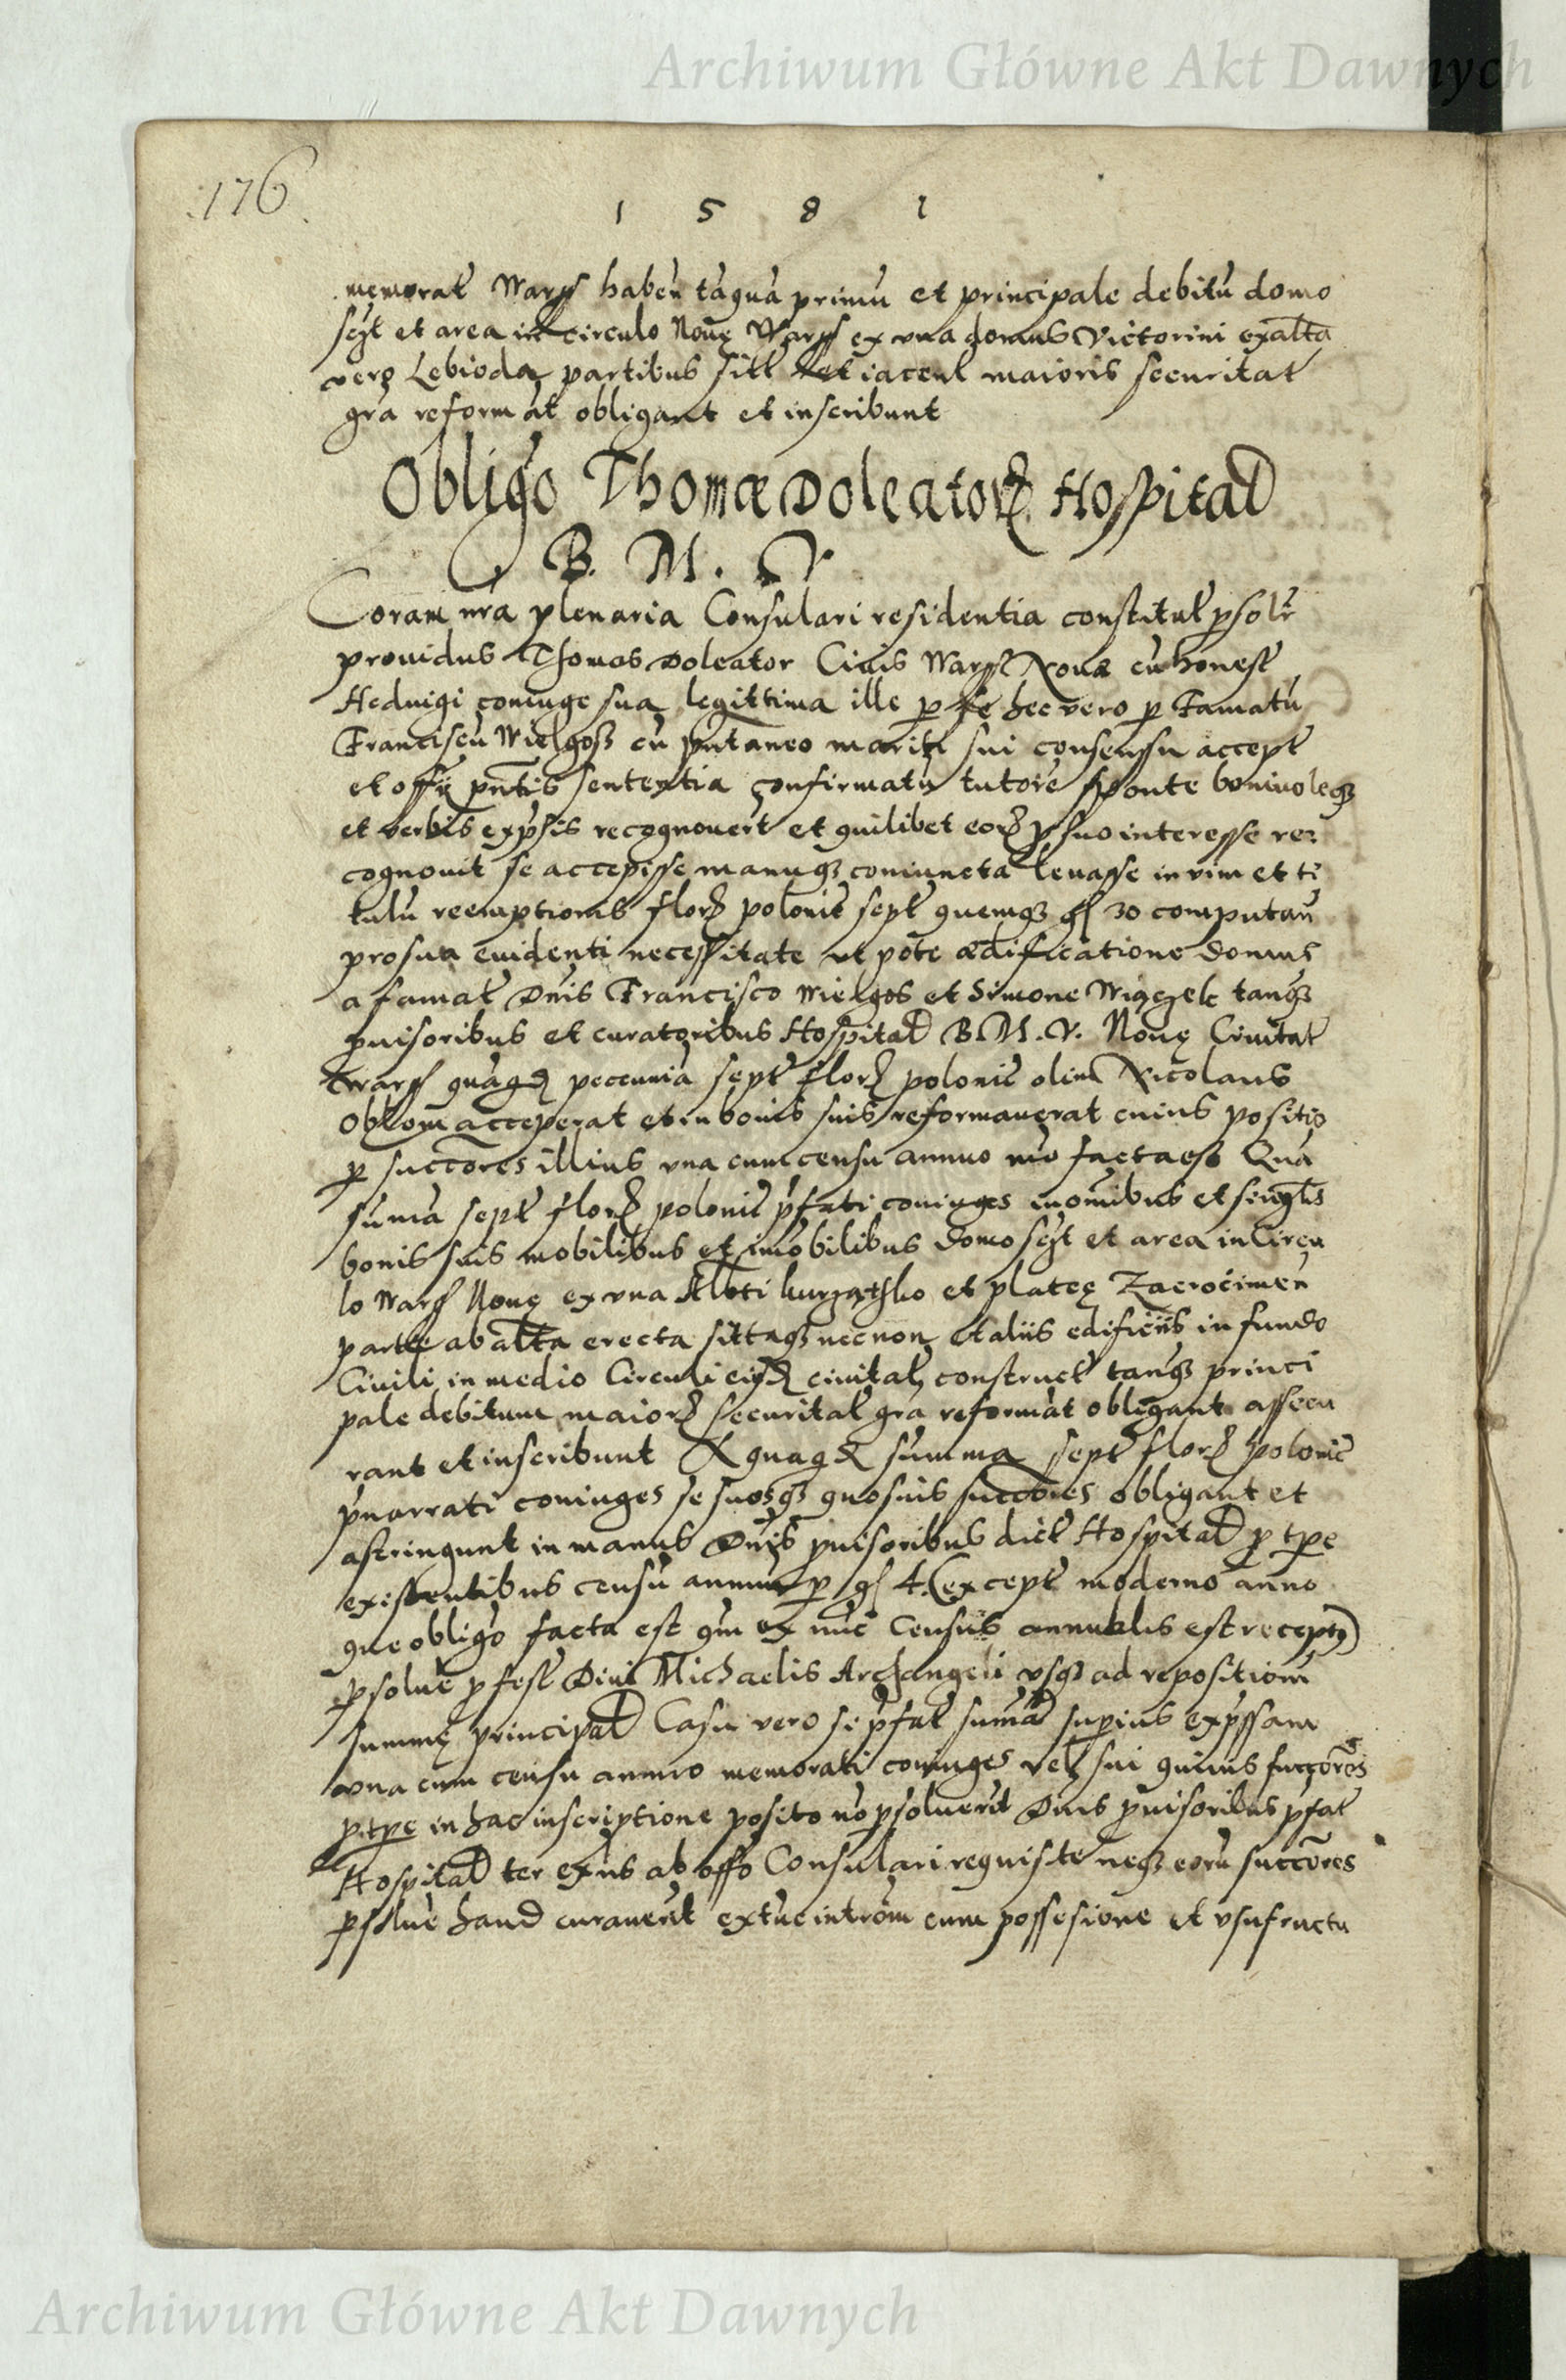 Archiwum Główne Akt Dawnych
176
1 5 8 1
memorat Warss haben taquā primū et principale debitū domo
scżt et area in circulo Nouę Warss ex vna domus Victorini ex alta
vero Lebioda partibus sitt et iacent maioris securitat
gra reformāt obligant et inscribunt
Obligo Thomæ Doleator Hospital
B. M. V
Coram nra plenaria Consulari residentia constitut psolr
prouidus Thomas Doleator Ciuis Warss Nouæ cū honest
Heduigi coniuge sua legittima ille p se hec vero p Famatū
Franciscū Wielgoss cū pntaneo mariti sui consensu accept
et offii pntis sententia confirmatū tutorē sponte beniuoleqz
et verbis expssis recognouert et quilibet eor p suo interesse re:
cognouit se accepisse manuqz coniuncta leuasse in vim et ti
tulū reemptionis flor polonic sept quemqz gs 30 computan
pro sua euidenti necessitate ut pote ædificatione domus
a famat Dnis Francisco Wielgos et Simone tanqz
puisoribus et curatoribus Hospital B. M. V. Nouę Ciuitat
Warss quāqd peccuniā sept flor polonic olim Nicolaus
acceperat et in bonis suis reformauerat cuius positio
p succores illius vna cum censu annuo mō facta est Quā
sumā sept flor polonic pfati coniuges in omibus et singlis
bonis suis mobilibus et imobilibus domo scżt et area in Circu
lo Warss Nouę ex vna Albti et plateę Zacrocimen
parte ab alta erecta sittaqz necnon et aliis edificiis in fundo
Ciuili in medio Circuli eiusd ciuitat construct tanqz princi
pale debitum maior securitat gra reformāt obligant assecu
rant et inscribunt A quaqd summa sept flor polonic
pnarrati coniuges se suosqz quosuis succores obligant et
astringunt in manus Dnis puisoribus dict Hospital p tpe
existentibus censū annuū p gs 4. (except moderno anno
quo obligo facta est qm ex nūc Census annualis est receptus)
psoluē p fest Diui Michaelis Archangeli vsqz ad repositionē
summę principal Casu vero si pfat sumā supius expssam
vna cum censu annuo memorati coniuges vel sui quiuis succores
p tpe in hac inscriptione posito nō psoluerit Dnis puisoribus pfat
Hospital ter exūs ab offo Consulari requisite neqz eorū succores
psoluē haud curauerit extūc introm cum possesione et vsufructu
Archiwum Główne Akt Dawnych